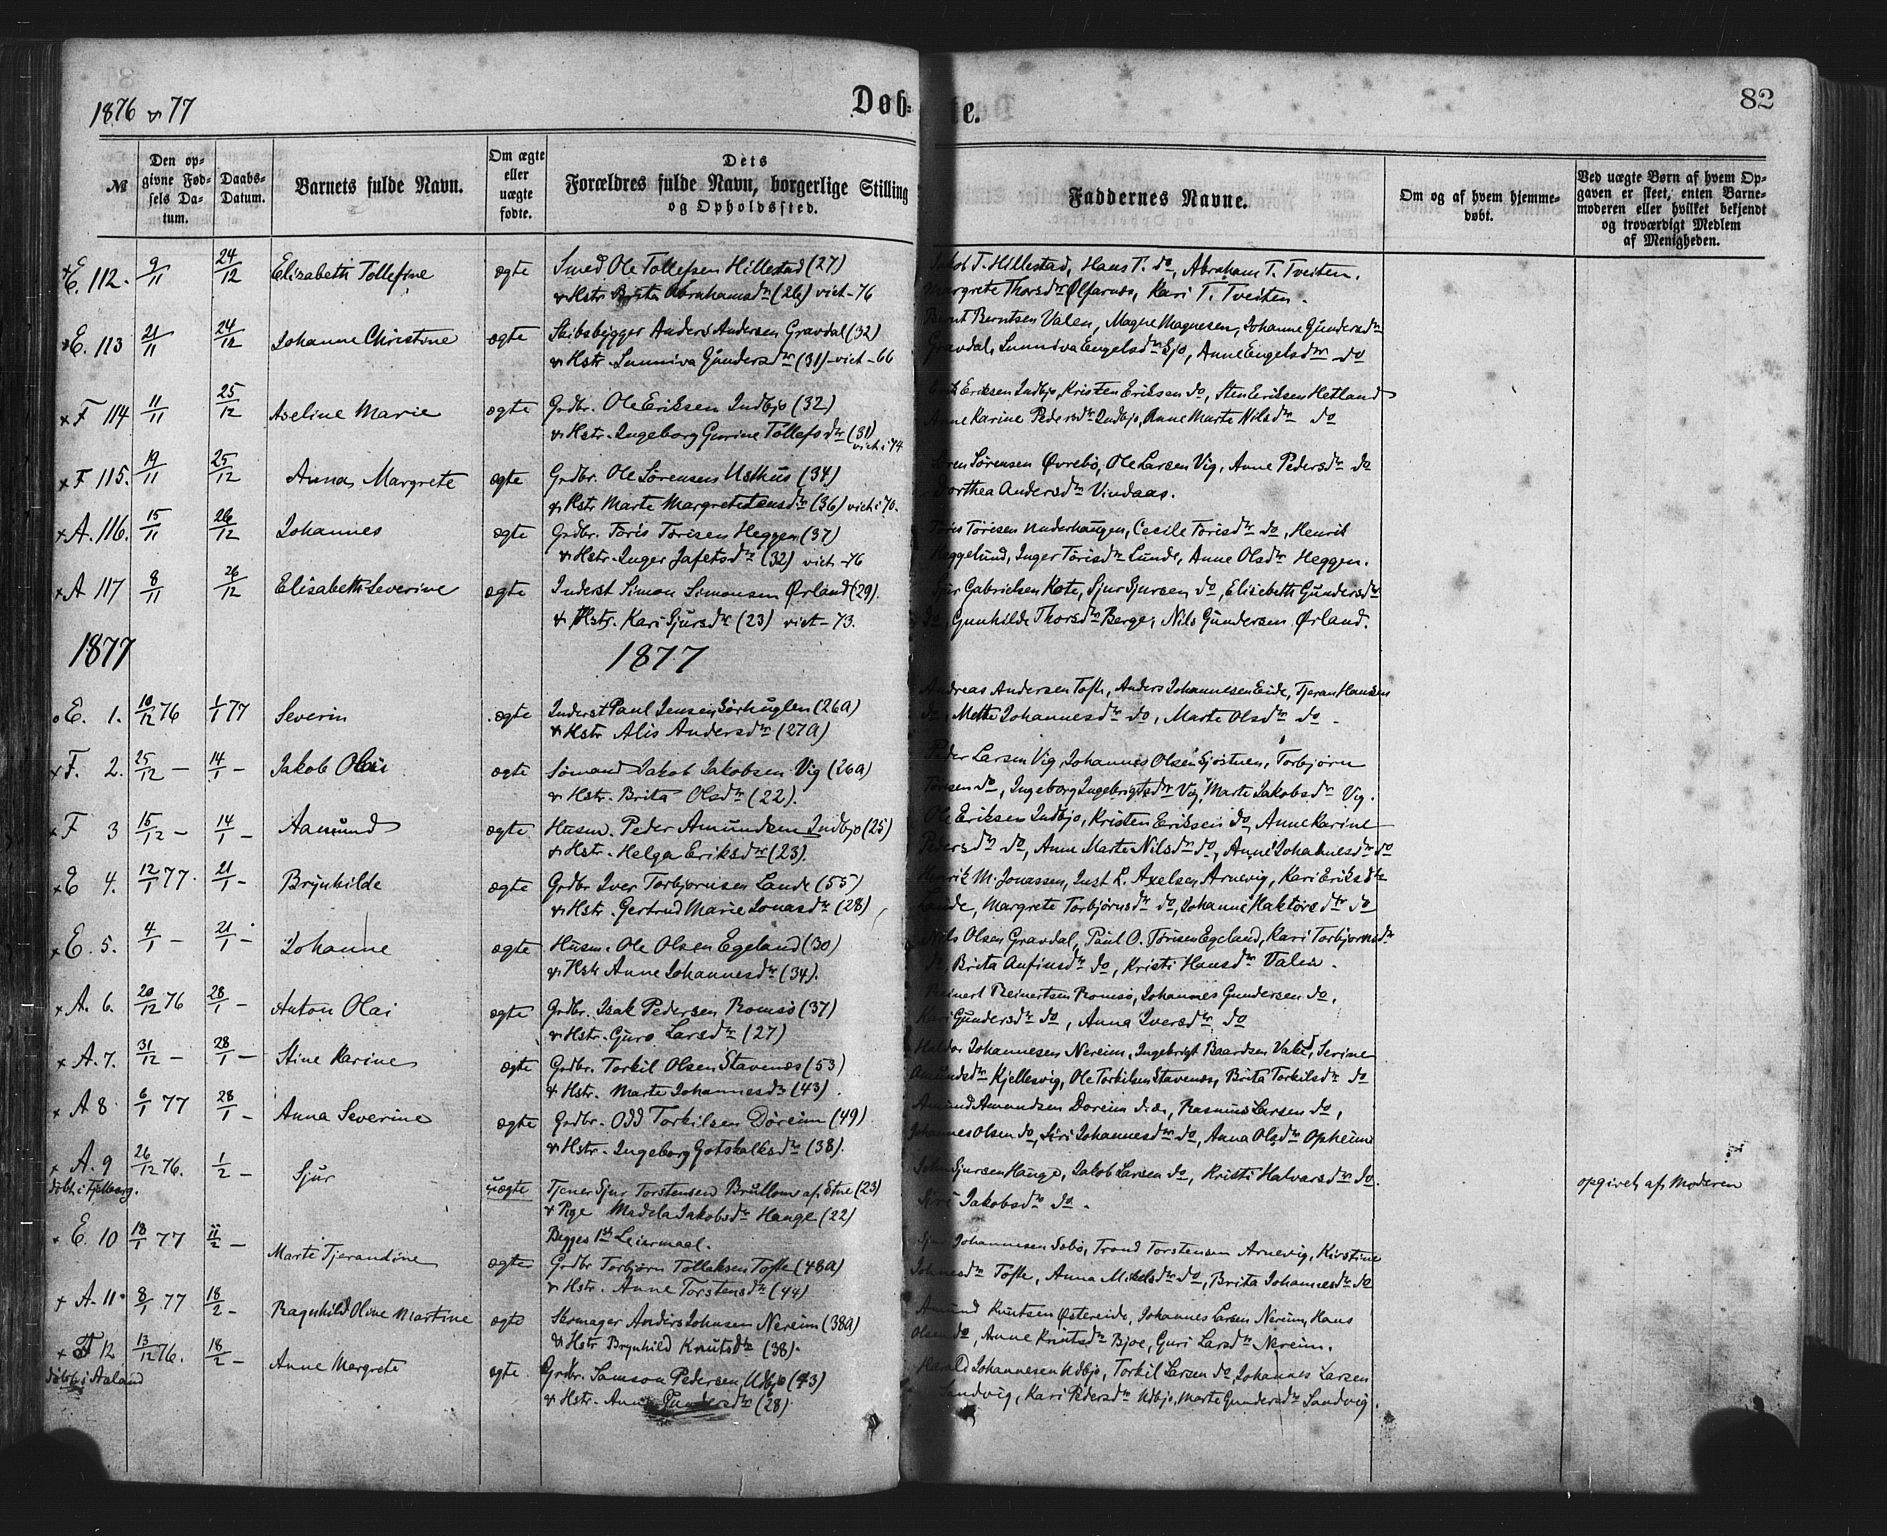 1876 & 77
Døb=
te.
82
№
Den op=
givne Fød=
sels Da=
tum.
Daabs=
Datum.
Barnets fulde Navn.
Om ægte
eller
uægte
fødte.
Dets
Forældres fulde Navn, borgerlige Stilling
og Opholdssted.
Faddernes Navne.
Om og af hvem hjemme=
døbt.
Ved uægte Børn af hvem Op=
gaven er skeet, enten Barne=
moderen eller hvilket bekjendt
og troværdigt Medlem
af Menigheden.
E. 112. 9/11 24/12 Elizabeth Tollefine ægte Smed Ole Tollefsen Hillestad (27)
& Hstr Brita Abrahamsdtr (26) viet - 76
Jakob T. Hillestad, Hans T. do, Abraham T. Tveiten.
Margrete Thorsdtr Ølfarnæs, Kari T. Tveiten.
E. 113 21/11 24/12 Johanne Christine ægte Skibsbygger Anders Andersen Gravdal (32)
& Hstr. Sunniva Gundersdtr (31) - viet - 66
Bernt Berntsen Valen, Magne Magnesen, Johanne Gundersdtr
Gravdal, Sunniva Engelsdtr Sjo, Anne Engelsdtr do
F 114 11/11 25/12 Aseline Marie ægte Grdbr. Ole Eriksen Indbjo (32)
& Hstr. Ingeborg Gurine Tollefsdtr (31)
viet i 74
Erik Eriksen Indbjo, Kristen Eriksen do, Sten Eriksen Hetland
Anne Karine Pedersdtr Indbjo, Anne Marte Nilsdtr do
F 115. 19/11 25/12 Anna Margrete ægte Grdbr. Ole Sørensen Usthus (34)
& Hstr Marte Margrete Jensdtr (36) viet i 70.
Søren Sørensen Øvrebø, Ole Larsen Vig, Anne Pedersdtr do
Dorthea Andersdtr Vindaas.
A. 116. 15/11 26/12 Johannes ægte Grdbr. Tøris Tørisen Heggen (37)
& Hstr. Inger Jafetsdtr (32) viet - 76
Tøris Tørisen Underhaugen, Cecile Tørisdtr do, Henrik
Heggelund, Inger Tørisdtr Lunde, Anne Olsdtr Heggen.
A 117 8/11 26/12 Elisabeth Severine ægte Inderst Simon Simonsen Ørland (29).
& Hstr. Kari Sjursdtr (23) viet - 73.
Sjur Gabrielsen Kote, Sjur Sjursen do, Elisebeth Gundersdtr
do, Gunhilde Thorsdtr Berge, Nils Gundersen Ørland.
1877 1877
E. 1. 10/12 76 1/1 77 Severin ægte Inderst Paul Jensen Sørhuglen (26a)
& Hstr Alis Andersdtr (27a)
Andreas Andersen Tofte, Anders Johannesen Eide, Tjeran Hansen
do, Mette Johannesdtr do, Marte Olsdtr do.
F. 2. 25/12 - 14/1 - Jakob Olai ægte Sømand Jakob Jakobsen Vig (26a)
& Hstr. Brita Olsdtr (22).
Peder Larsen Vig, Johannes Olsen Sjøstuen, Torbjørn
Tørisen do, Ingeborg Ingebrigtsdtr Vig, Marte Jakobsdtr Vig.
F 3 15/12 - 14/1 - Aamund ægte Husm. Peder Amundsen Indbjo (25)
& Hstr. Helga Eriksdtr (23).
Ole Eriksen Indbjo, Kristen Eriksen do, Anne Karine
Pedersdtr do, Anne Marte Nilsdtr do, Anne Johannesdtr do
E 4. 12/1 77. 21/1 - Brynhilde ægte Grdbr Iver Torbjørnsen Lande (55)
& Hstr. Gertrud Marie Jonasdtr (28)
Henrik M. Jonassen, Just L. Axelsen Arnevig, Kari Eriksdtr
Lande, Margrete Torbjørnsdtr do, Johanne Haktorsdtr do
E. 5. 4/1 - 21/1 - Johanne ægte Husm. Ole Olsen Egeland (30)
& Hstr Anne Johannesdtr (34).
Nils Olsen Gravdal, Paul O. Tørisen Egeland, Kari Torbjørnsdtr
do, Brita Anfinsdtr do, Kristi Hansdtr Valen.
A. 6. 20/12 76 28/1 - Anton Olai ægte Grdbr. Isak Pedersen Romsø (37)
& Hstr. Guro Larsdtr (27)
Reinert Reinertsen Romsø, Johannes Gundersen do,
Kari Gundersdtr do, Anna Iversdtr do
A. 7. 31/12 - 28/1 - Stine Karine ægte Grdbr. Torkil Olsen Stavenæs (53)
& Hstr. Marte Johannesdtr (43).
Haldor Johannesen Nereim, Ingebrigt Baardsen Vake, Serine
Amundsdtr Kjellesvig, Ole Torkilsen Stavenæs, Brita Torkilsdtr do
A 8 6/1 77 28/1 - Anna Severine ægte Grdbr. Odd Torkilsen Døreim (49)
& Hstr. Ingeborg Gotskalksdtr (38).
Amund Amundsen Doreim, Rasmus Larsen do,
Johannes Olsen do, Siri Johannesdtr do, Anna Olsdtr Opheim
A. 9 26/12 76. 1/2 - Sjur uægte Tjener Sjur Torstensen Brullom af Etne (23)
døbt i Fjelberg.
& Pige Madela Jakobsdtr Hauge (22)
Begges 1ste Leiermaal.
John Sjursen Hauge, Jakob Larsen do, Kristi Halvorsdtr do.
Siri Jakobsdtr do.
opgivet af Moderen
E. 10 18/1 77 11/2 - Marte Tjerandine ægte Grdbr Torbjørn Tollaksen Tofte (48a)
& Hstr. Anne Torstensdtr (44)
Johannesen Sæbø, Trond Torstensen Arnevig, Kirstine
Johnesdtr Tofte, Anna Mikelsdtr do, Brita Johannesdtr do
A. 11. 8/1 77 18/2 - Ragnhild Oline Martine ægte Skomager Anders Johnsen Nereim (38a)
& Hstr Brynhild Knutsdtr (38).
Amund Knutsen Østereide, Johannes Larsen Nereim, Hans
Olsen do, Anne Knutsdtr Bjoe, Guri Larsdtr Nereim.
F 12 13/12 76. 18/2 - Anne Margrete ægte Grdbr. Samson Pedersen Udbjo (43)
døbt i Aaland
& Hstr. Anna Gundersdtr (28)
Harald Johannesen Udbjo, Torkil Larsen do, Johannes Larsen
Sandvig, Kari Pedersdtr Udbjo, Marte Gundersdtr Sandvig.